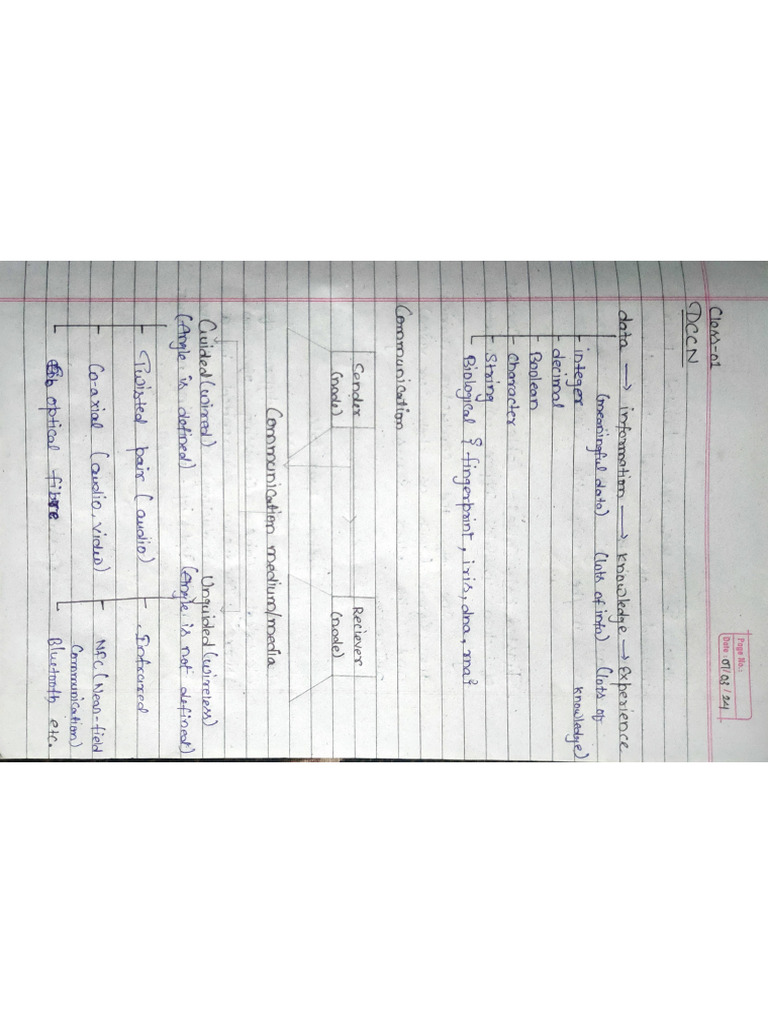 Page No.:
Date: 07/03/24
Class-01
DCCN
data → information → knowledge → experience
(meaningful data) (lots of info) (lots of knowledge)
- integer
- decimal
- Boolean
- Character
- String
Biological { fingerprint, iris, dna, rna}
Communication
Sender
(node)
Reciever
(node)
Communication medium/media
Guided (wired) Unguided (wireless)
(Angle is defined) (Angle is not defined)
- Twisted pair (audio) - Infrared
- Co-axial (audio, video) - NFC (Near-field
Communication)
optical fibre Blutooth etc.